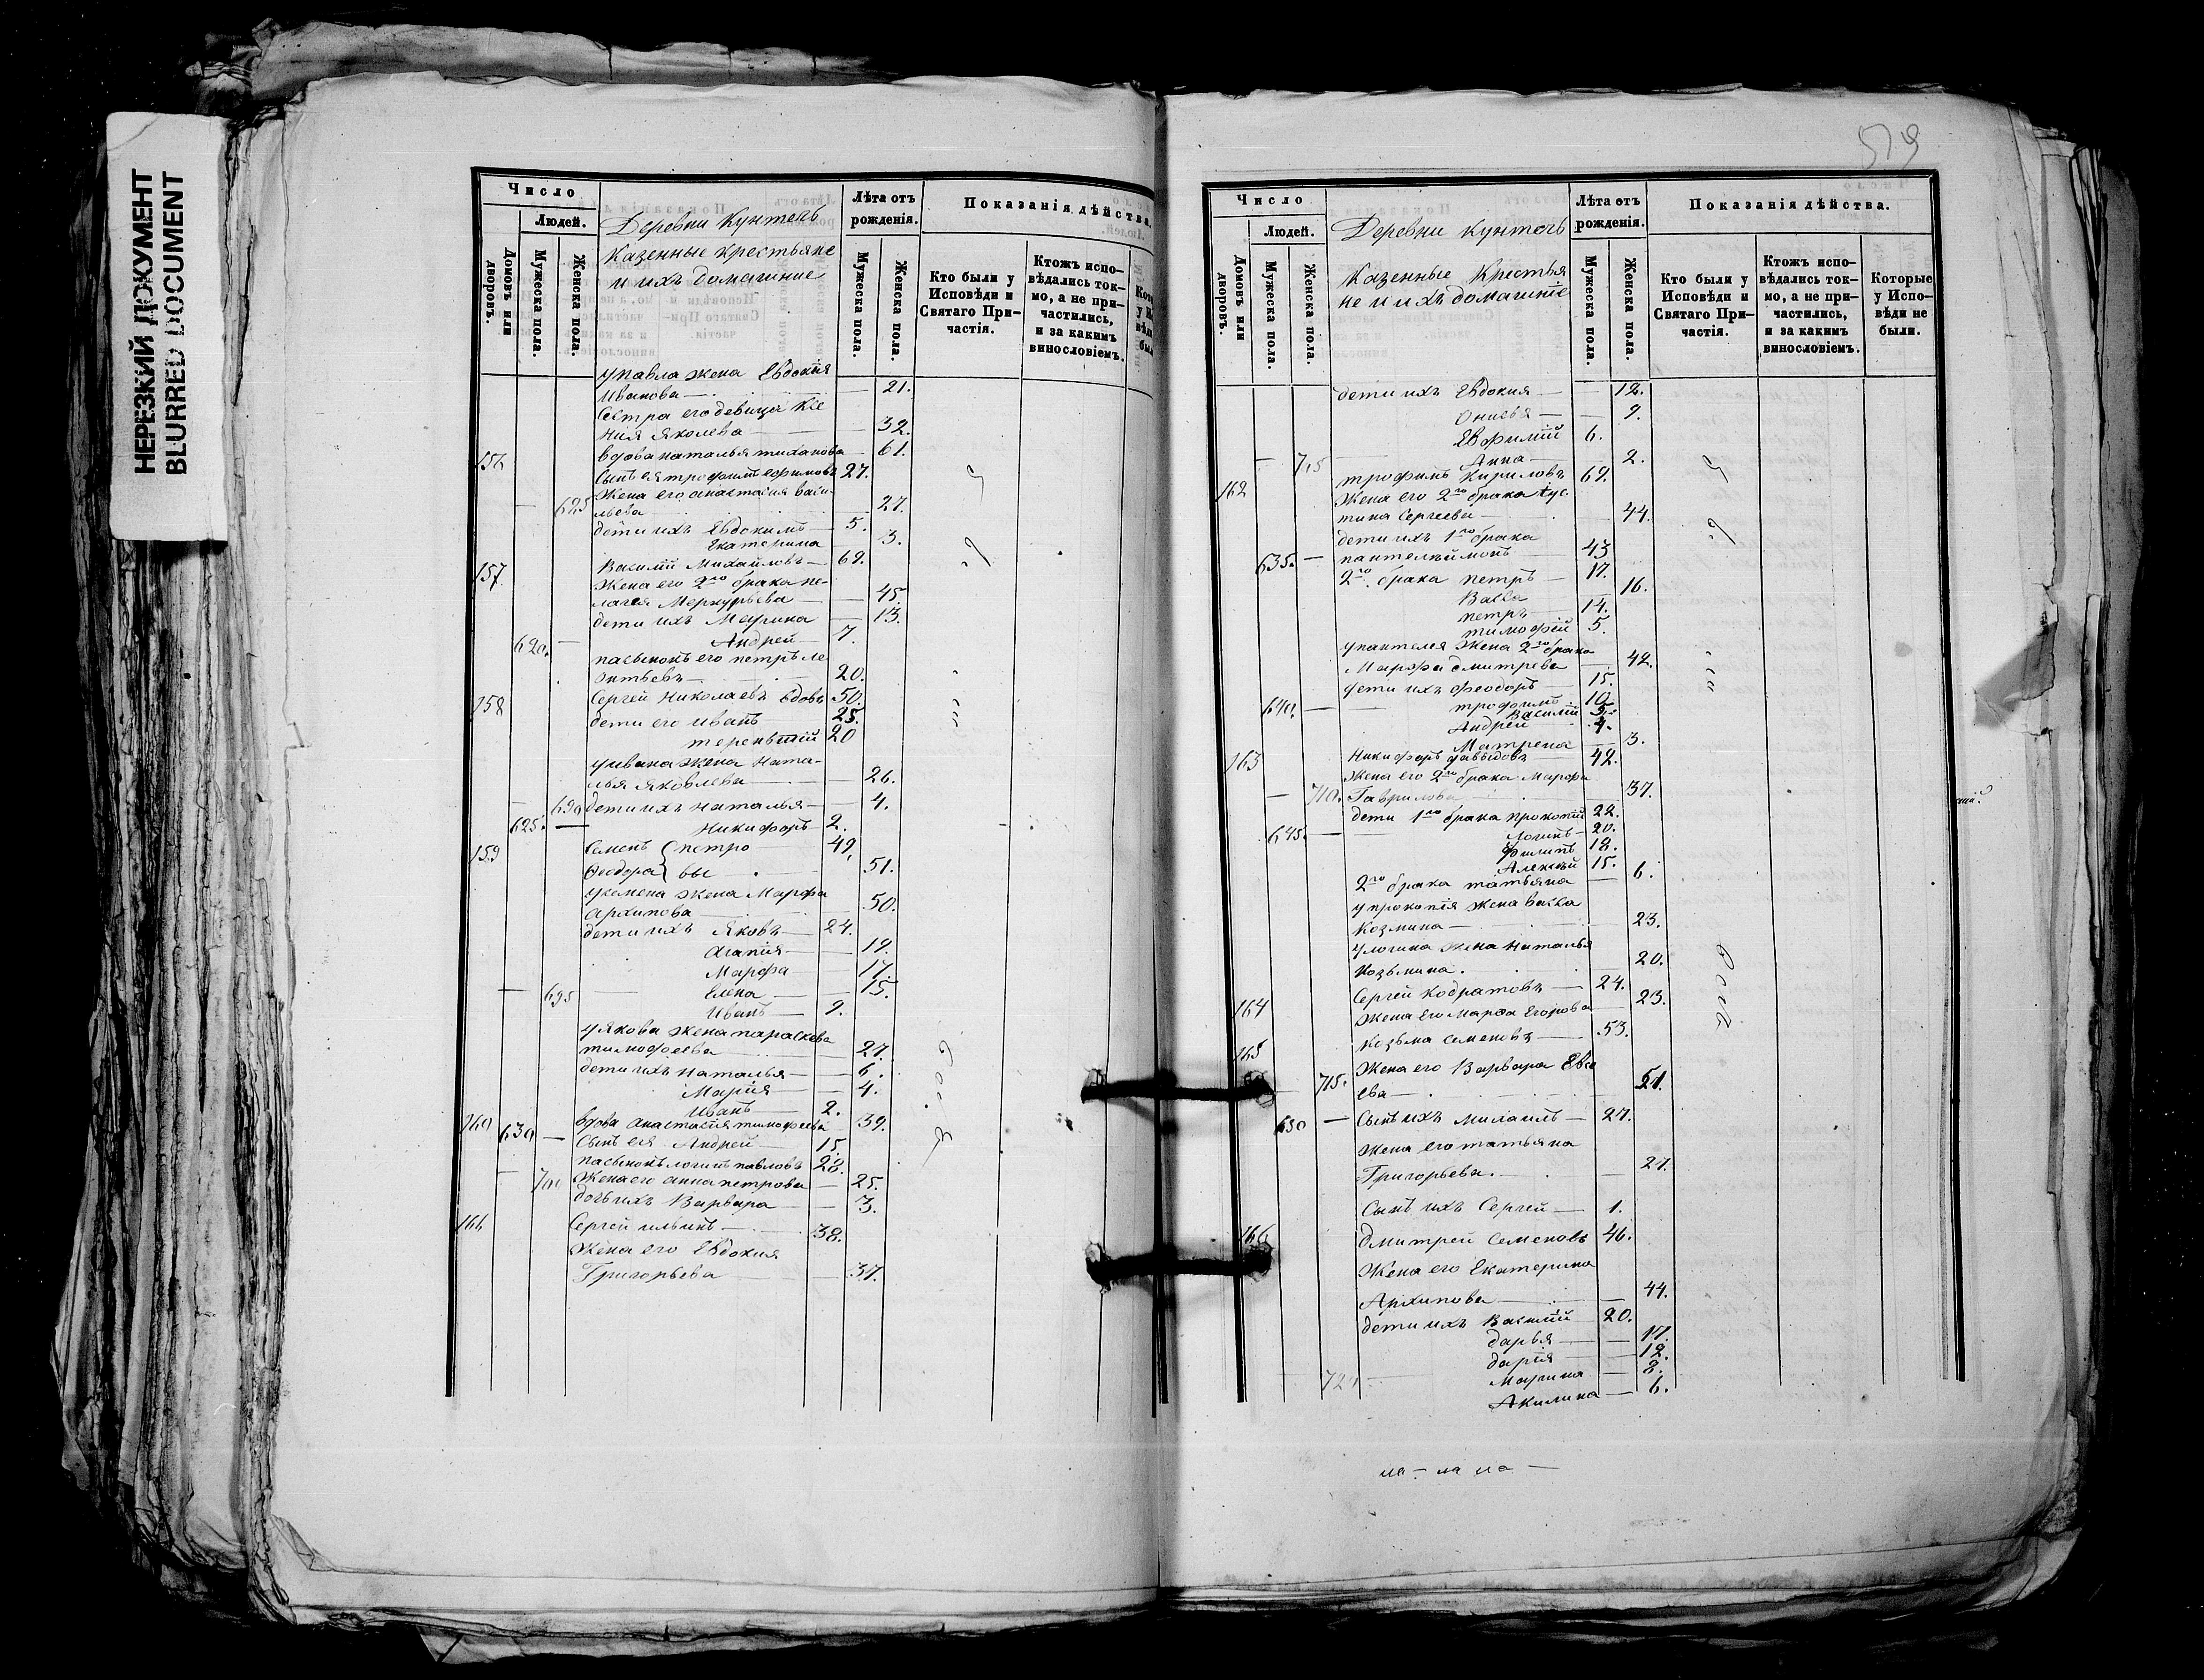 НЕРЕЗКИЙ ДОКУМЕНТ
BLURRED DOCUMENT
Число
Людей.
Домовъ или дворовъ.
Мужеска пола.
Женска пола.
Деревни Кунтечь
Казенные крестьяне
и ихъ домашние
Лѣта отъ рожденія.
Мужеска пола.
Женска пола.
Показанія дѣйства.
Кто были у Исповѣди и Святаго Причастія.
Ктожъ исповѣдались токмо, а не причастились, и за какимъ винословіемъ.
у павла жена Евдокія
Иванова — 21.
Сестра его девица
Яколева — 32.
156 вдова наталья — 61.
Сынъ ея трофимъ ефимовъ 27.
Жена его анастасия васи-
685 льева 27.
дети ихъ Евдокимъ — 5.
Екатерина 3.
157 Василій Михайловъ — 69.
Жена его 2го брака пе-
лагея Меркурьева — 45.
дети ихъ Марина — 13.
620. — Андрей — 7.
пасынокъ его петръ ле-
онтьевъ 20.
158 Сергей Николаевъ вдовъ 50.
дети его Иванъ 25.
терентий 20
у ивана жена Ната-
лья яковлева — 26.
690 дети ихъ наталья — 4.
625. — Никифоръ — 2.
159 Семенъ петро 49.
Феодора вы — 51.
у семена жена Марфа
архипова 50.
дети ихъ Яковъ — 24.
Агапия — 19.
Марфа — 17.
695 Елена — 15.
Иванъ — 9.
у якова жена параскева
тимофеева 27.
дети ихъ наталья — 6.
Мария — 4.
Иванъ — 2.
160 вдова анастасия тимофеева 39.
630 — Сынъ ея Андрей — 15.
пасынокъ логинъ павловъ 28.
700 Жена его анна петрова — 25.
дочь ихъ Варвара — 3.
Сергей ильинъ — 38.
Жена его Евдокия
Григорьева 37.
519
Число
Людей.
Домовъ или дворовъ.
Мужеска пола.
Женска пола.
Деревни кунтечь
Казенные Крестья
не и ихъ домашніе
Лѣта отъ рожденія.
Мужеска пола.
Женска пола.
Показанія дѣйства.
Кто были у Исповѣди и Святаго Причастія.
Ктожъ исповѣдались токмо, а не причастились, и за какимъ винословіемъ.
Которые у Исповѣди не были.
дети ихъ Евдокия — 12.
9.
Евфимий 6.
Анна — 2.
162 трофимъ Кириловъ 69.
Жена его 2го брака Хрис
тина Сергеева — 44.
дети ихъ 1го брака
635. — пантелеймонъ 43
2го брака петръ — 17.
Васса 16.
петръ — 14.
тимофей 5.
у пантелея жена 2го брака
Марфа дмитрева — 42.
дети ихъ феодоръ — 15.
640. — трофимъ 10
Василий
Андрей — 4.
Матрена 3.
163 Никифоръ давыдовъ 42.
жена его 2го брака Марфа
710. Гаврилова 37.
дети 1го брака прокопий 22.
645. — Логинъ — 20.
Филипъ 18.
Алексей 15.
2го брака татьяна — 6.
у прокопия жена васса
Козмина — 23.
у логина жена наталья
Козьмина. 20.
164 Сергей Кодратовъ — 24.
Жена его Марфа Егорова 23.
165 Козьма семеновъ — 53.
Жена его Варвара Евсе
715. ева — 51.
650 — Сынъ ихъ Михаилъ — 27.
жена его татьяна
Григорьева. — 27.
Сынъ ихъ Сергей — 1.
166 дмитрей Семеновъ 46.
Жена его Екатерина
Архипова — 44.
дети ихъ Василий 20.
дарья — 17.
дария — 12.
Марина — 8.
Акилина — 6.